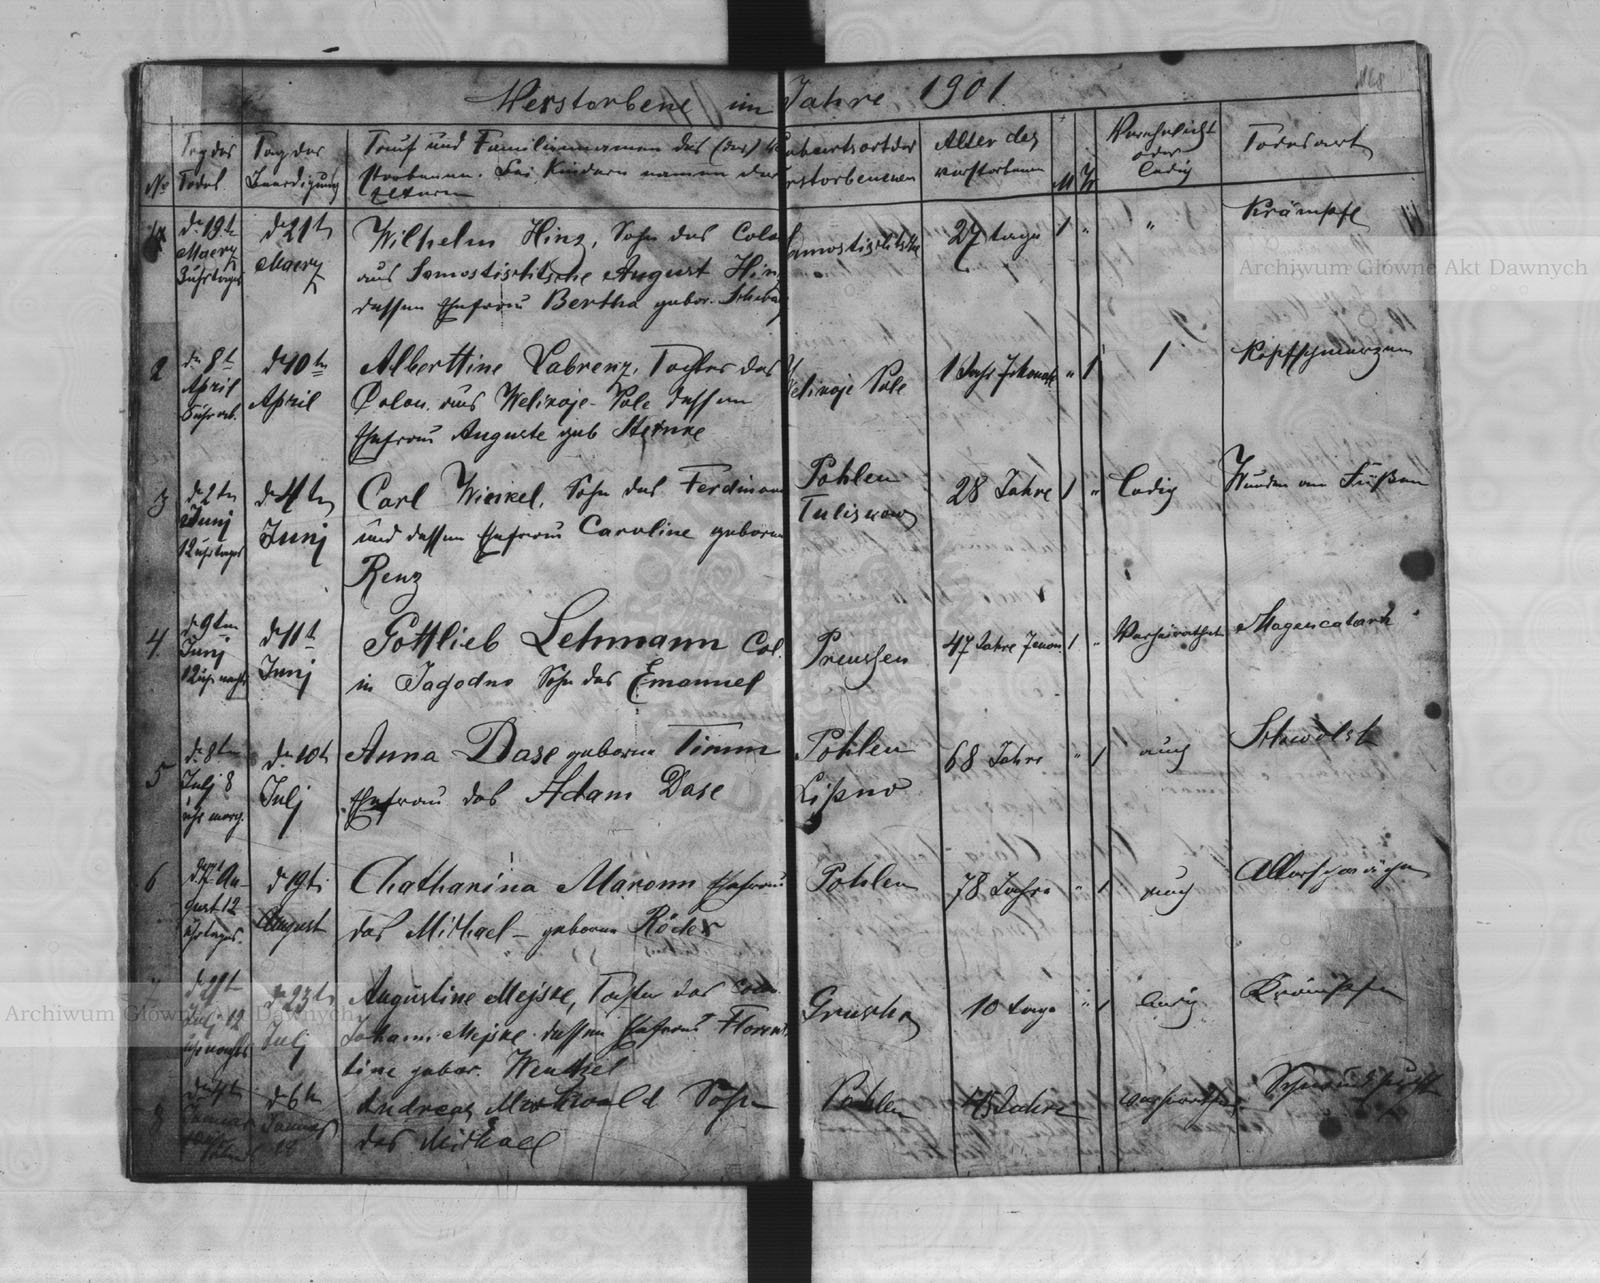 Verstorbene im Jahre 1901.
No
Tag des Todes
Tag der Beerdigung
Tauf und Familiennamen des (der) Verstorbenen. Bei Kindern namen der Aeltern
Geburtsort des verstorbenenen
Alter des verstorbenen
M
W
Verehelicht oder ledig
Todesart
d 19t Maerz
d 21t Maerz
Wilhelm Hinz, Sohn des Colo
aus Samostischtsche August Hinz
dessen Ehefrau Bertha gebor.
Samostischtsche
27 tage
1 "
"
Krämpfe
2
d 8t April
d 10tn April
Alberttine Labrenz, Tochter des
Colon. aus Welikoje-Pole dessen
Ehefrau Auguste geb Sternke
Welikoje Pole
1 Jahr 7 Monate
" 1
1
Kopfschmerzen
3
d 2tn Junj
12 uhr tages
d 4tn Junj
Carl Winkel, Sohn des Ferdinand
und dessen Ehefrau Caroline geboren
Renz
Pohlen
Tuliskow
28 Jahre
1 "
Ledig
Wunden am Füßen
4.
d 9tn Junj
12 uhr nachts
d 11t Junj
Gottlieb Lehmann Col.
in Jagodno Sohn des Emanuel
Preussen
47 Jahre 7 mon.
1 "
Verheirathet
Magencatarh
5
d 8tn Julj 8
uhr morg.
d 10t Julj
Anna Dase geborne Timm
Ehefrau des Adam Dase
Pohlen
Lipno
68 Jahre
" 1
auch
6
d 17t August 12
uhr tages.
d 19t August
Chatharina Maronn Ehefrau
des Michael – geborne Röder
Pohlen
78 Jahre
" 1
auch
Altersschwäche
d 21t
Julj 12
uhr nachts
d 23t Julj
Augustine Mejske, Tochter des Colon
Johann Mejske dessen Ehefrau Floren
tine gebor. Wentzel
Gruscha
10 tage
" 1
ledig
Krämpfe
8
d 4t Januar
d 6tn Januar
Andreas Markwald Sohn
des Michael
Pohlen
Jahre
Schwindsucht
Archiwum Główne Akt Dawnych
Archiwum Główne Akt Dawnych